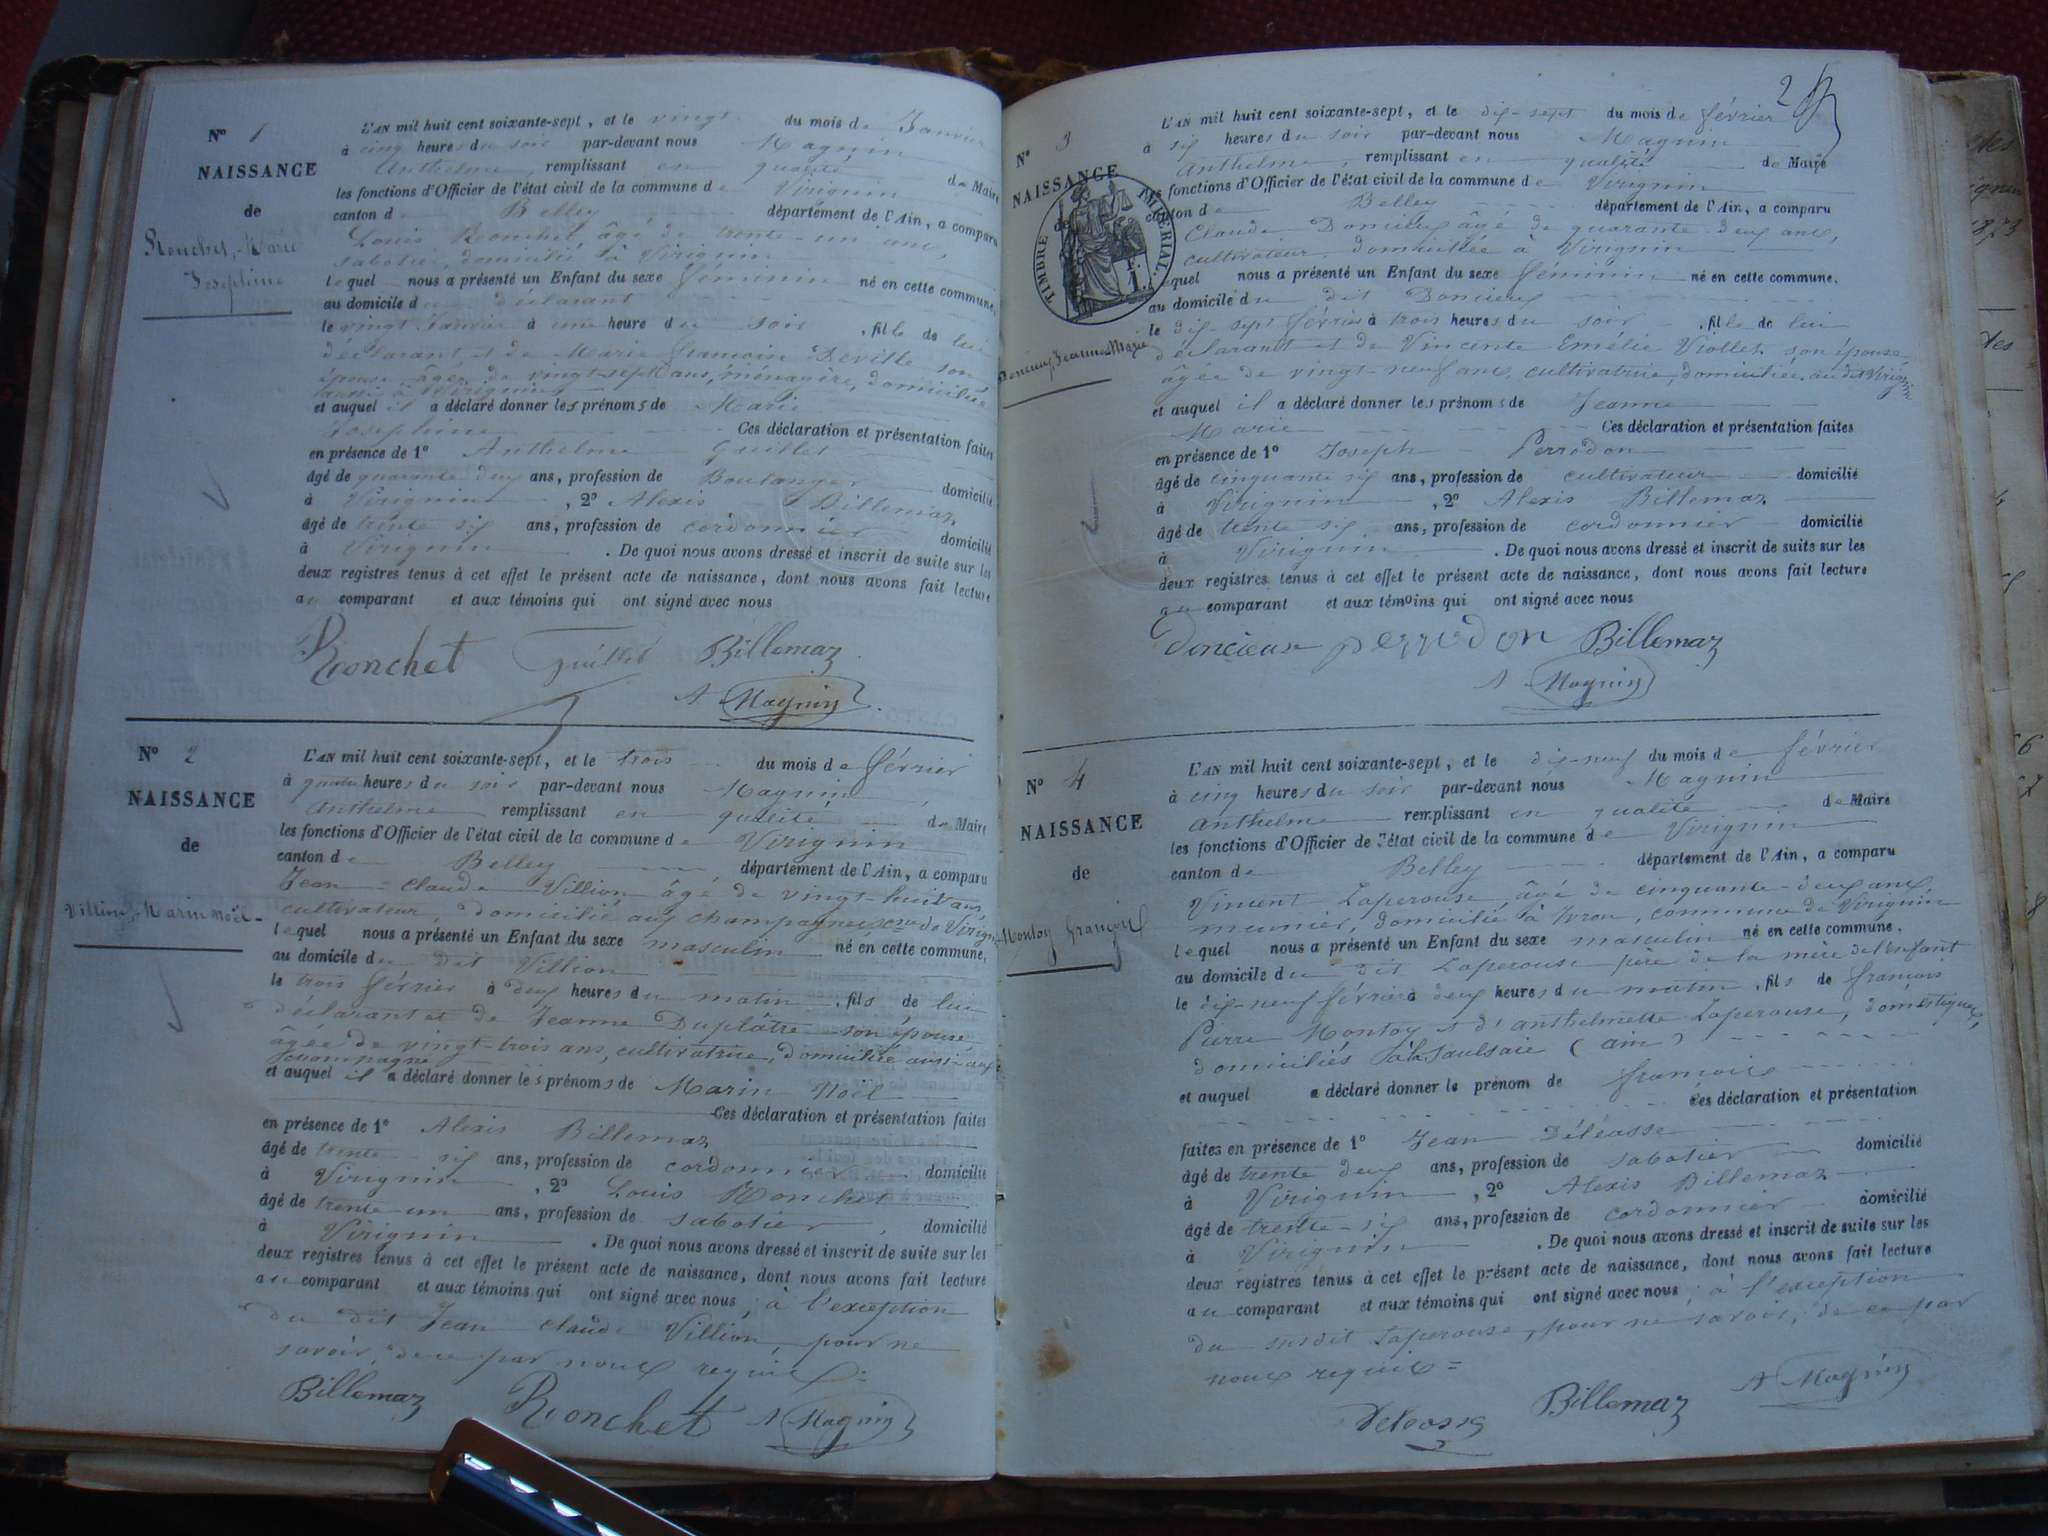 N° 1
NAISSANCE
de
Ronchet, Marie
Josephine
L'AN mil huit cent soixante-sept, et le vingt du mois de Janvier
à cinq heures du soir par-devant nous Magnin
Anthelme, remplissant en qualité de Maire
les fonctions d'Officier de l'état civil de la commune de Virignin
canton de Belley département de l'Ain, a comparu
Louis Ronchet âgé de trente-un ans,
sabotier, domicilié à Virignin
lequel nous a présenté un Enfant du sexe féminin né en cette commune,
au domicile du déclarant
le vingt Janvier à une heure du soir, fille de lui
déclarant et de Marie françoise Deville son
épouse âgée de vingt-sept ans, ménagère, domiciliée
aussi à Virignin
et auquel il a déclaré donner les prénoms de Marie
Josephine Ces déclaration et présentation faites
en présence de 1° Anthelme Guillet
âgé de quarante deux ans, profession de Boulanger domicilié
à Virignin, 2° Alexis Billemaz
âgé de trente six ans, profession de cordonnier domicilié
à Virignin. De quoi nous avons dressé et inscrit de suite sur les
deux registres tenus à cet effet le présent acte de naissance, dont nous avons fait lecture
au comparant et aux témoins qui ont signé avec nous
Ronchet Guillet Billemaz
A Magnin
N° 2
NAISSANCE
de
Villion, Marin Noël
L'AN mil huit cent soixante-sept, et le trois du mois de février
à quatre heures du soir par-devant nous Magnin
Anthelme remplissant en qualité de Maire
les fonctions d'Officier de l'état civil de la commune de Virignin
canton de Belley département de l'Ain, a comparu
Jean-claude Villion âgé de vingt-huit ans
cultivateur, domicilié aux champagnes cne de Virignin
lequel nous a présenté un Enfant du sexe masculin né en cette commune,
au domicile du dit Villion
le trois février à deux heures du matin, fils de lui
déclarant et de Jeanne Duplâtre son épouse
âgée de vingt-trois ans, cultivatrice, domiciliée aussi aux
Champagne
et auquel il a déclaré donner les prénoms de Marin Noël
Ces déclaration et présentation faites
en présence de 1° Alexis Billemaz
âgé de trente-six ans, profession de cordonnier domicilié
à Virignin, 2° Louis Ronchet
âgé de trente un ans, profession de sabotier, domicilié
à Virignin. De quoi nous avons dressé et inscrit de suite sur les
deux registres tenus à cet effet le présent acte de naissance, dont nous avons fait lecture
au comparant et aux témoins qui ont signé avec nous, à l'exception
du dit Jean claude Villion, pour ne
savoir, de ce par nous requis
Billemaz Ronchet A Magnin
2
N° 3
NAISSANCE
de
TIMBRE IMPÉRIAL
F. 1.
Doncieux Jeanne Marie
L'AN mil huit cent soixante-sept, et le dix-sept du mois de février
à six heures du soir par-devant nous Magnin
Anthelme, remplissant en qualité de Maire
les fonctions d'Officier de l'état civil de la commune de Virignin
canton de Belley département de l'Ain, a comparu
Claude Doncieux âgé de quarante-deux ans,
cultivateur domicilié à Virignin
lequel nous a présenté un Enfant du sexe féminin né en cette commune.
au domicile du dit Doncieux
le dix-sept février à trois heures du soir, fille de lui
déclarant et de Vincente Emélie Viollet son épouse
âgée de vingt-neuf ans, cultivatrice, domiciliée au dit Virignin
et auquel il a déclaré donner les prénoms de Jeanne
Marie Ces déclaration et présentation faites
en présence de 1° Joseph Perrodon
âgé de cinquante six ans, profession de cultivateur domicilié
à Virignin, 2° Alexis Billemaz
âgé de trente six ans, profession de cordonnier domicilié
à Virignin. De quoi nous avons dressé et inscrit de suite sur les
deux registres tenus à cet effet le présent acte de naissance, dont nous avons fait lecture
au comparant et aux témoins qui ont signé avec nous
Doncieux perrodon Billemaz
A Magnin
N° 4
NAISSANCE
de
Montoy François
L'AN mil huit cent soixante-sept, et le dix-neuf du mois de février
à cinq heures du soir par-devant nous Magnin
Anthelme remplissant en qualité de Maire
les fonctions d'Officier de l'état civil de la commune de Virignin
canton de Belley département de l'Ain, a comparu
Vincent Laperouse, âgé de cinquante-deux ans,
meunier, domicilié à commune de Virignin
lequel nous a présenté un Enfant du sexe masculin né en cette commune.
au domicile du dit Laperouse père de la mère de l'enfant
le dix-neuf février à deux heures du matin, fils de françois
Pierre Montoy et d'anthelmette Laperouse, domestiques,
domiciliés à la Saulsaie (ain)
et auquel a déclaré donner le prénom de françois
Ces déclaration et présentation
faites en présence de 1° Jean Déléasse
âgé de trente deux ans, profession de sabotier domicilié
à Virignin, 2° Alexis Billemaz
âgé de trente-six ans, profession de cordonnier domicilié
à Virignin. De quoi nous avons dressé et inscrit de suite sur les
deux registres tenus à cet effet le présent acte de naissance, dont nous avons fait lecture
au comparant et aux témoins qui ont signé avec nous, à l'exception
du susdit Laperouse, pour ne savoir, de ce par
nous requis =
Billemaz A Magnin